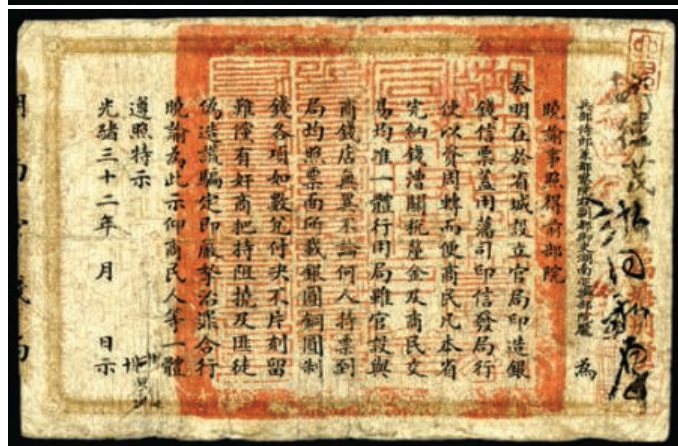 兵部侍郎兼都察院右副都御史湖南巡撫部院龐 為
曉諭事照得前部院
奏明在於省城設立官局印造銀
錢信票蓋用藩司印信發局行
使以資周轉而便商民凡本省
完納錢漕關稅釐金及商民交
易均准一體行用局雖官設與
商錢店無異不論何人持票到
局均照票面所載銀圓銅圓制
錢各項如數兌付決不片刻留
難儻有奸商把持阻撓及匪徒
偽造誆騙定即嚴拏治罪合行
曉諭為此示仰商民人等一體
遵照特示
光緒三十二年 月 日示